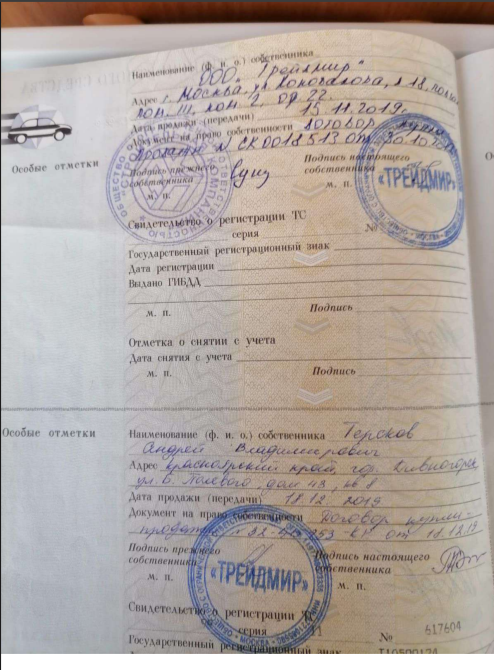 Наименование (ф. и. о.) собственника
ООО "Трейдмир"
Адрес г. Москва, ул. Коновалова, д. 18,
пом. III, ком. 2 оф 22.
Дата продажи (передачи) 15.11.2019г.
Документ на право собственности договор купли
продажи N СК0018513 от 30.10.
Особые отметки
Подпись прежнего собственника
Подпись настоящего собственника
м. п.
м. п.
«ТРЕЙДМИР»
Свидетельство о регистрации ТС
серия №
Государственный регистрационный знак
Дата регистрации
Выдано ГИБДД
м. п. Подпись
Отметка о снятии с учета
Дата снятия с учета
м. п. Подпись
Особые отметки
Наименование (ф. и. о.) собственника Терсков
Андрей Владимирович
Адрес Красноярский край, гор. Дивногорск
ул. Б. Полевого, дом 43, кв 8
Дата продажи (передачи) 18.12.2019
Документ на право собственности Договор купли-
продажи от 18.12.19
Подпись прежнего собственника
Подпись настоящего собственника
м. п.
м. п.
«ТРЕЙДМИР»
МОСКВА
Свидетельство о регистрации
серия № 617604
Государственный регистрационный знак